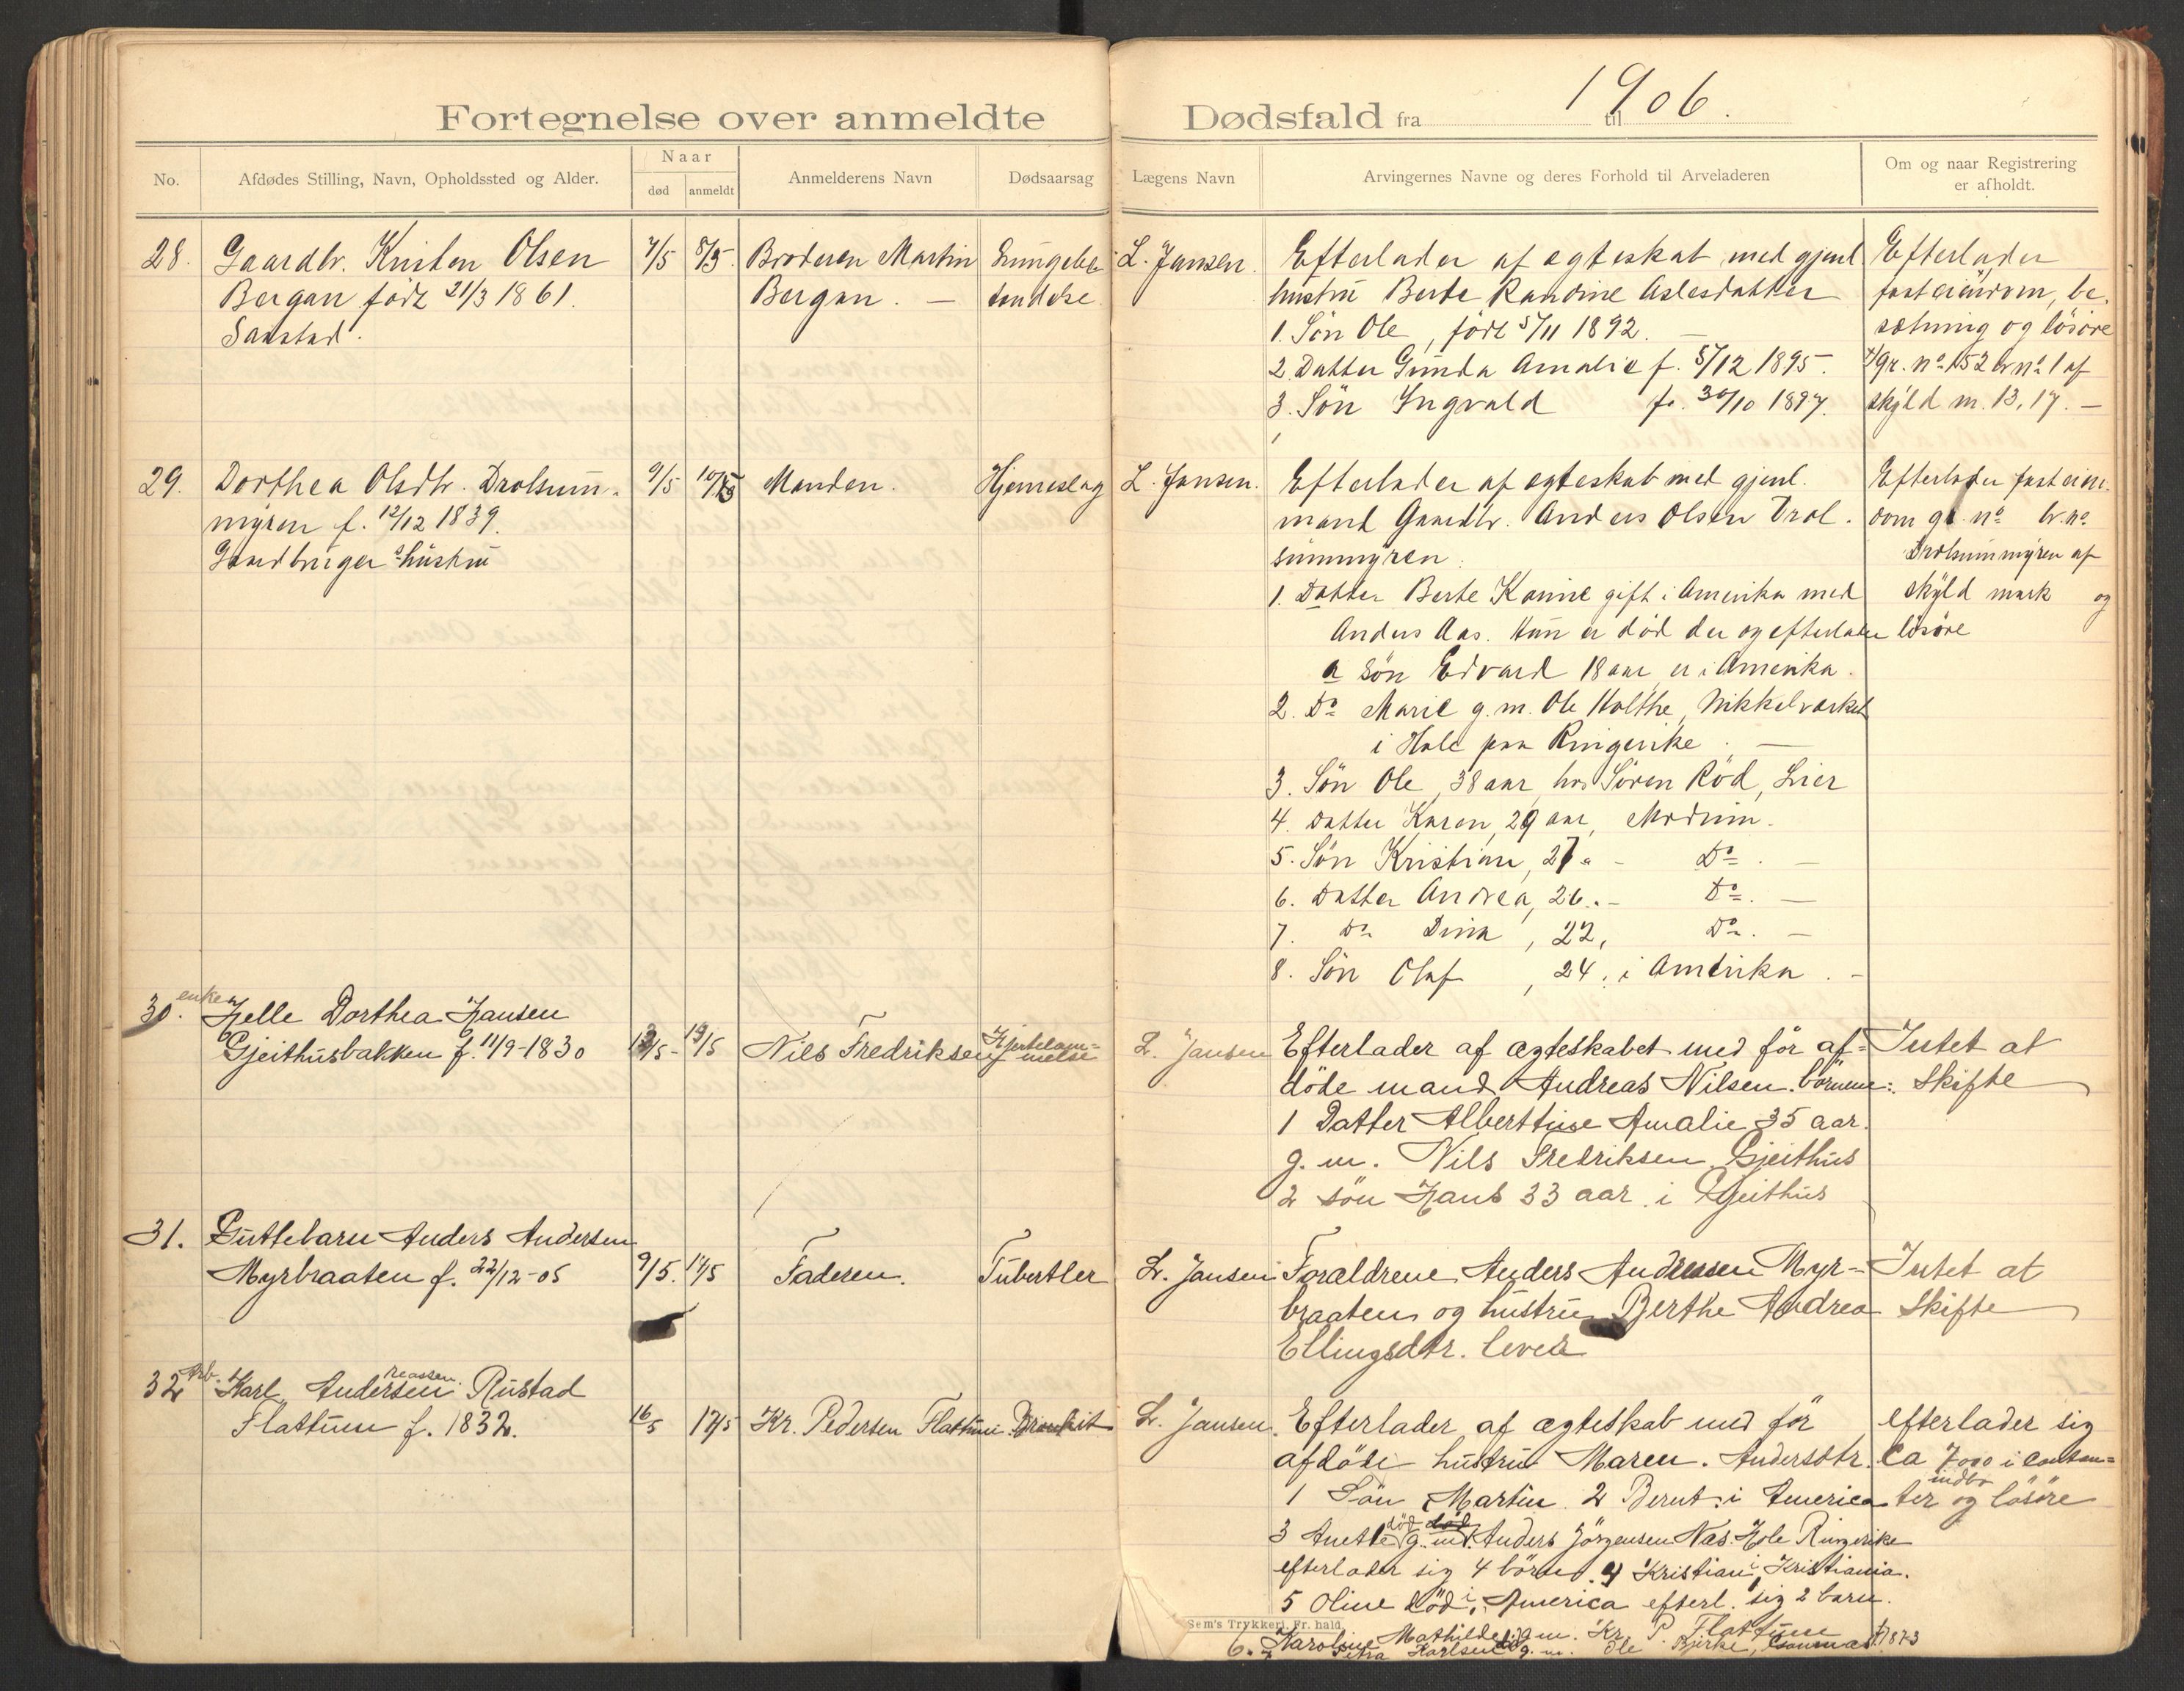 Fortegnelse over anmeldte Dødsfald fra til 1906.
No. Afdødes Stilling, Navn, Opholdssted og Alder. Naar død anmeldt Anmelderens Navn Dødsaarsag Lægens Navn Arvingernes Navne og deres Forhold til Arveladeren Om og naar Registrering er afholdt.
28. Gaardbr. Kristen Olsen
Bergan född 21/3 1861.
7/5 8/5. Broderen Martin
Bergan. —
Lungebe-
tændelse
L. Jansen.
Efterlader af egteskab med gjenl.
hustru Berte Randine Aslesdatter
1. Søn Ole, född 5/11 1892. —
2. Datter Gunda Amalie f. 5/12 1895.
3. Søn Ingvald f. 30/10 1897.
Efterlader
fast eiendom, be-
sætning og løsøre
gr. no 152 br no 1 af
skyld m. 13,17. —
29. Dorthea Olsdtr. Drolsum-
myren f. 12/12 1839.
Gaardbruger hustru
9/5 10/5 Manden. Hjerneslag L. Jansen.
Efterlader af egteskab med gjenl.
mand Gaardbr. Anders Olsen Drol-
summyren.
1. Datter Berte Karine gift i Amerika med
Anders Aas. Hun er död der og efterlader
a Søn Edvard 18 aar er i Amerika.
2. Do Marie g. m. Ole Holthe, Nikkelværket
i Hole paa Ringerike. —
3. Søn Ole, 38 aar, hos Søren Röd, Lier
4. Datter Karen, 29 aar, Modum.
5. Søn Kristian, 27 - Do. —
6. Datter Andrea, 26. - Do. —
7. Do Dina, 22, Do. —
8. Søn Olaf, 24, i Amerika. -
Efterlader fast eien-
dom gr. no br. no
Drolsummyren af
skyld mark og
løsøre
30. enken Helle Dorthea Hansen
Gjeithusbakken f. 11/9-1830
Nils Fredriksen
L. Jansen
Efterlader af ægteskabet med før af-
døde mand Andreas Nilsen. børnene:
1 Datter Alberttine Amalie 35 aar.
g. m. Nils Fredriksen, Gjeithus
2 søn Hans 33 aar. i Gjeithus
Intet at
Skifte
31. Guttebarn Anders Andersen
Myrbraaten f. 22/12-05
9/5. 11/5 Faderen. Tubertler L. Jansen
Foraldrene Anders Andersen Myr-
braaten og hustru Berthe Andrea
Ellingsdtr. lever
Intet at
Skifte
32 Arb. Karl Andersen reassen. Rustad
Flattum f. 1832.
16/5 17/5 Kr. Pedersen Flattum Bronkit L. Jansen.
Efterlader af ægteskab med før
afdøde hustru Maren. Andersdtr.
1 Søn Martin. 2 Bernt. i America
3 Anette død g. m. Anders Jörgensen Næs. Hole Ringerike
efterlader sig 4 børn. 4 Kristian i Kristiania.
5 Oline död i America efterl. sig 2 barn.
6. Karoline Mathilde g. m. Kr. P. Flattum
7 Petra Karlsen g. m. Ole Bjerke, f. 1873
efterlader sig
Ca 7000 i contan-
ter indbo og løsøre
Sem's Trykkeri, Fr.hald.